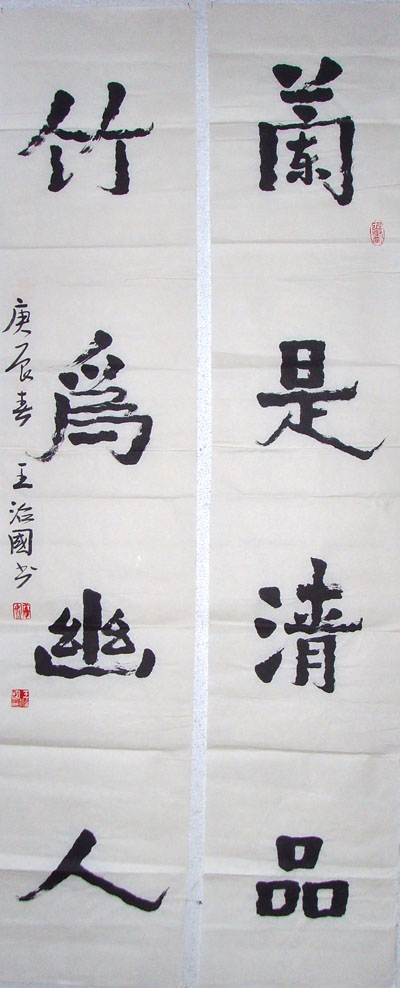 蘭是清品
竹爲幽人
庚辰春 王治國书